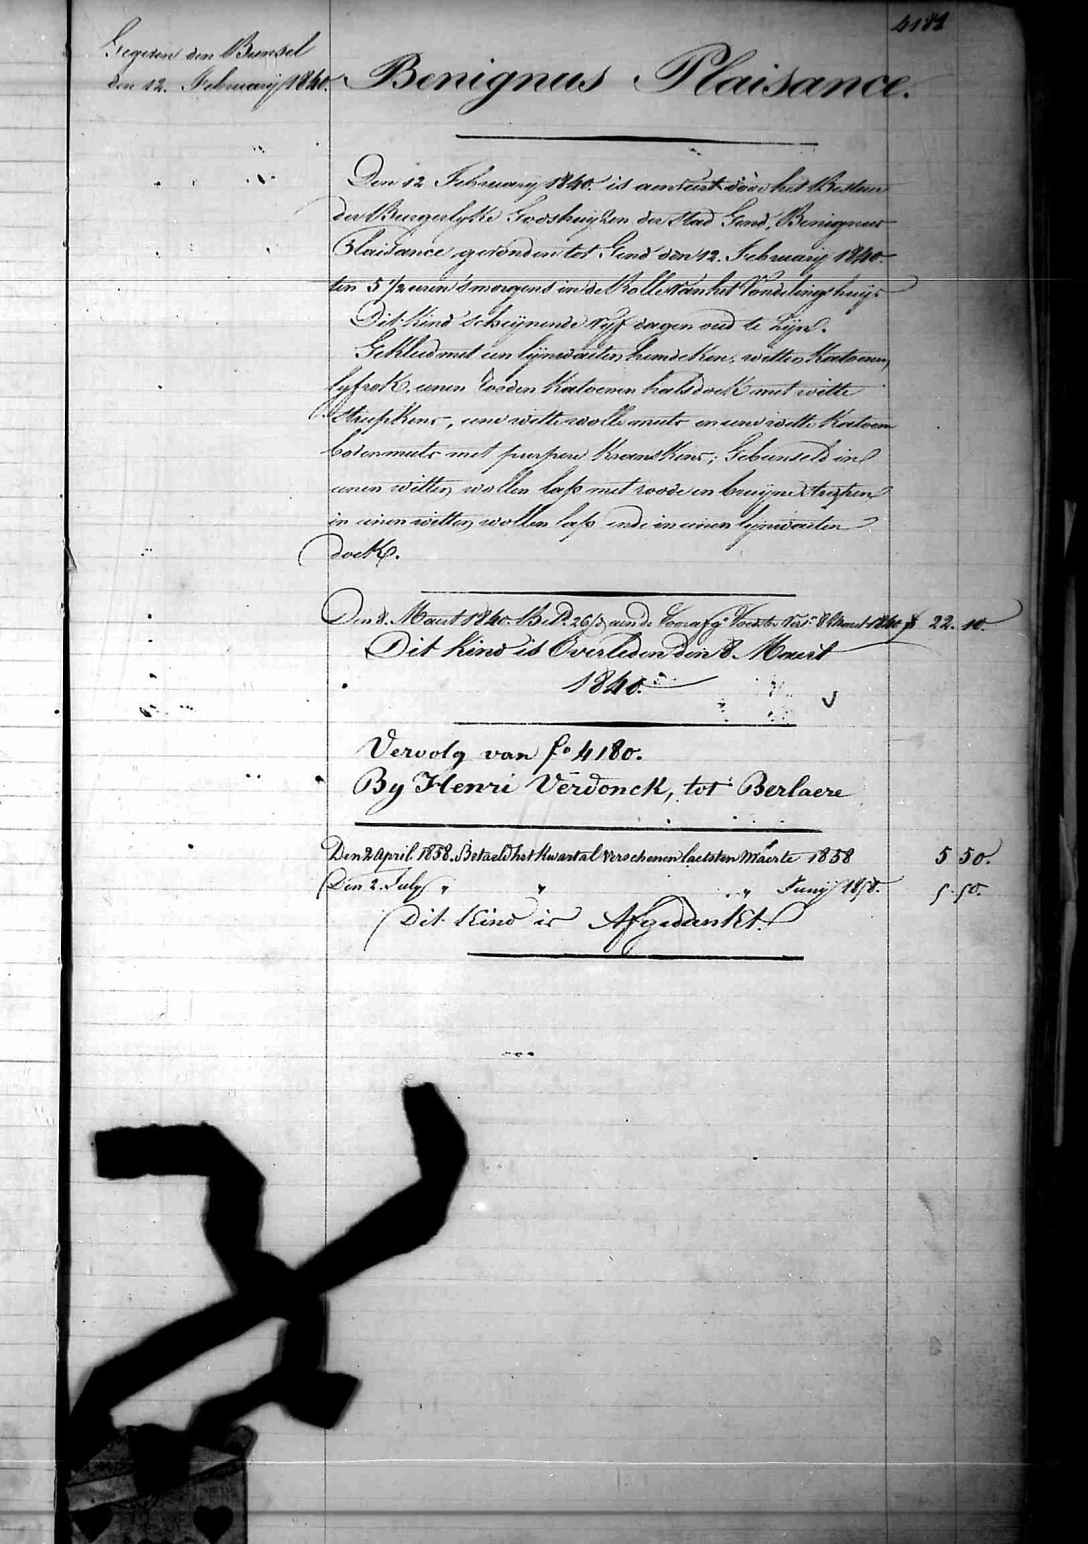 4181
Gegeven den Bunsel
den 12. February 1840.
Benignus Plaisance.
Den 12 February 1840. is aenveirt door het Bestier
der Burgerlyke Godshuyzen der Stad Gend, Benignus
Plaisance, gevonden tot Gend den 12. February 1840.
ten 5 1/2 uren 's morgens in de Rolle van het Vondelinghuys
Dit kind scheynende vyf dagen oud te zyn.
Gekleed met een lynwaeten hemdeken, witten katoenen
lyfrok, eenen rooden katoenen halsdoek met witte
striepkens, eene witte wolle muts en eene witte katoene
bovenmuts met purpere kranskens; Gebunseld in
eenen witten wollen lap met roode en bruyne strepen
in eenen witten wollen lap ende in eenen lynwaeten
doek.
Den 8. Maert 1840. 26/3 aen de Voester 8 Maert 1840 f 22. 10.
Dit kind is Overleden den 8. Maert
1840.
Vervolg van fo 4180.
By Henri Verdonck, tot Berlaere
Den 2 April 1858. Betaeld het Kwartal verschenen laetsten Maerte 1858 5 50.
Den 2. July " " " Juny 1858. 5. 50.
Dit kind is Afgedankt.